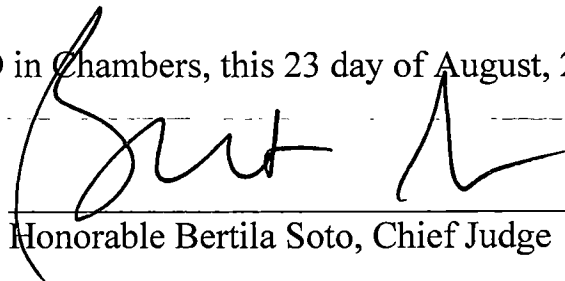 in Chambers, this 23 day of August,
Honorable Bertila Soto, Chief Judge